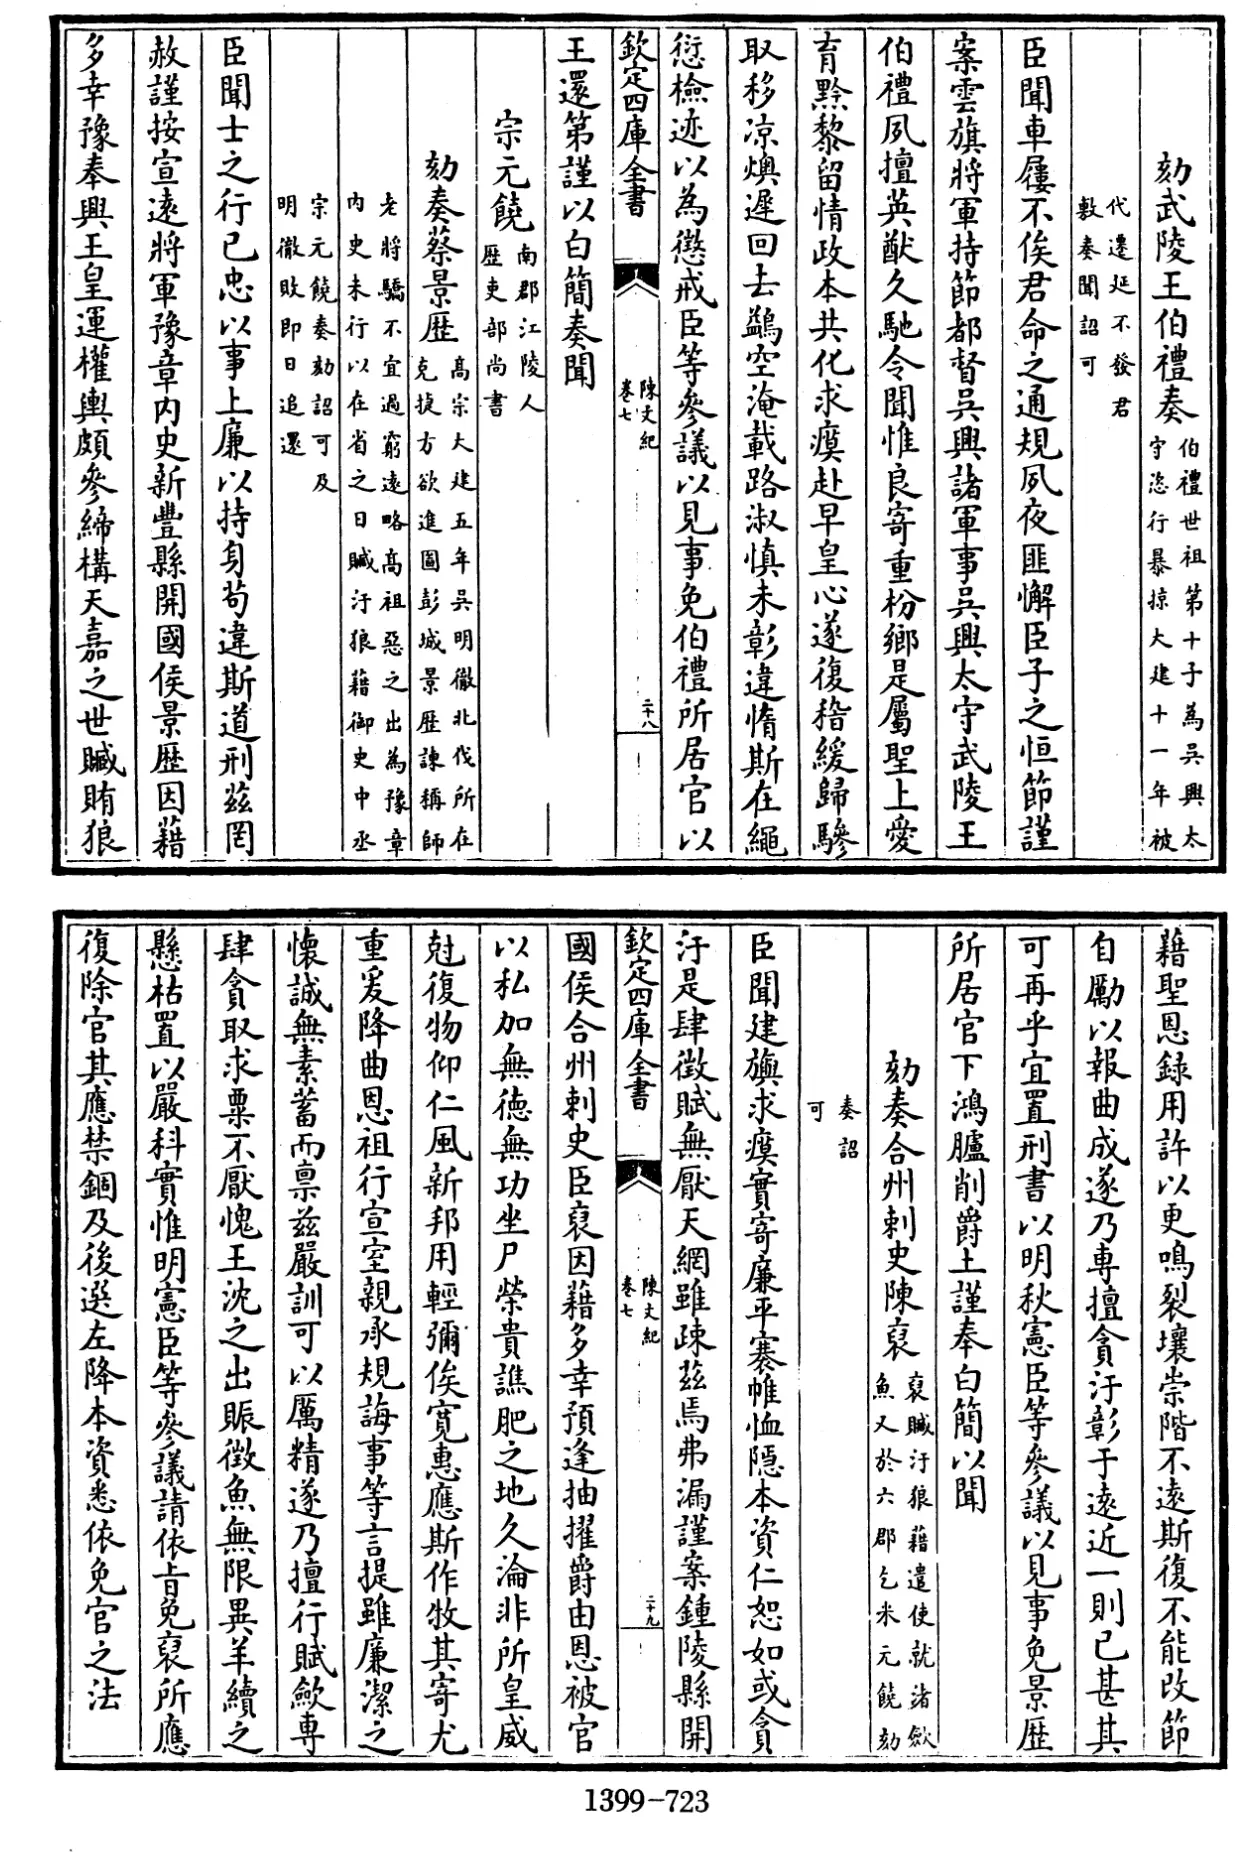 劾武陵王伯禮奏伯禮世祖第十子為吳興太守恣行暴掠大建十一年被
代遷延不發君敷奏聞詔可
臣聞車屨不俟君命之通規夙夜匪懈臣子之恒節謹
案雲旗將軍持節都督吳興諸軍事吳興太守武陵王
伯禮夙擅英猷久馳令聞惟良寄重枌鄉是屬聖上愛
育黔黎留情政本共化求瘼赴早皇心遂復稽緩歸驂
取移凉燠遲回去鷁空淹載路淑慎未彰違惰斯在繩
愆檢迹以為懲戒臣等參議以見事免伯禮所居官以
欽定四庫全書
陳文紀
卷七
二十八
王還第謹以白簡奏聞
宗元饒南郡江陵人歴吏部尚書
劾奏蔡景歴高宗大建五年吳明徹北伐所在克捷方欲進圖彭城景歴諫稱師
老將驕不宜過窮遠略高祖惡之出為豫章内史未行以在省之日贓汙狼藉御史中丞
宗元饒奏劾詔可及明徹敗即日追還
臣聞士之行已忠以事上廉以持身苟違斯道刑兹罔
赦謹按宣遠將軍豫章内史新豐縣開國侯景歴因藉
多幸豫奉興王皇運權輿頗參締構天嘉之世贓賄狼
藉聖恩録用許以更鳴裂壤崇階不遠斯復不能改節
自勵以報曲成遂乃專擅貪汙彰于遠近一則已甚其
可再乎宜置刑書以明秋憲臣等參議以見事免景歴
所居官下鴻臚削爵土謹奉白簡以聞
劾奏合州刺史陳裒裒贓汙狼藉遣使就渚歛魚又於六郡乞米元饒劾
奏詔可
臣聞建旟求瘼實寄廉平褰帷恤隱本資仁恕如或貪
汙是肆徵賦無厭天網雖疎兹焉弗漏謹案鍾陵縣開
欽定四庫全書
陳文紀
卷七
二十九
國侯合州刺史臣裒因藉多幸預逢抽擢爵由恩被官
以私加無德無功坐尸榮貴譙肥之地久淪非所皇威
尅復物仰仁風新邦用輕彌俟寛惠應斯作牧其寄尤
重爰降曲恩祖行宣室親承規誨事等言提雖廉潔之
懷誠無素蓄而禀兹嚴訓可以厲精遂乃擅行賦歛專
肆貪取求粟不厭愧王沈之出賑徵魚無限異羊續之
懸枯置以嚴科實惟明憲臣等參議請依旨免裒所應
復除官其應禁錮及後選左降本資悉依免官之法
1399-723